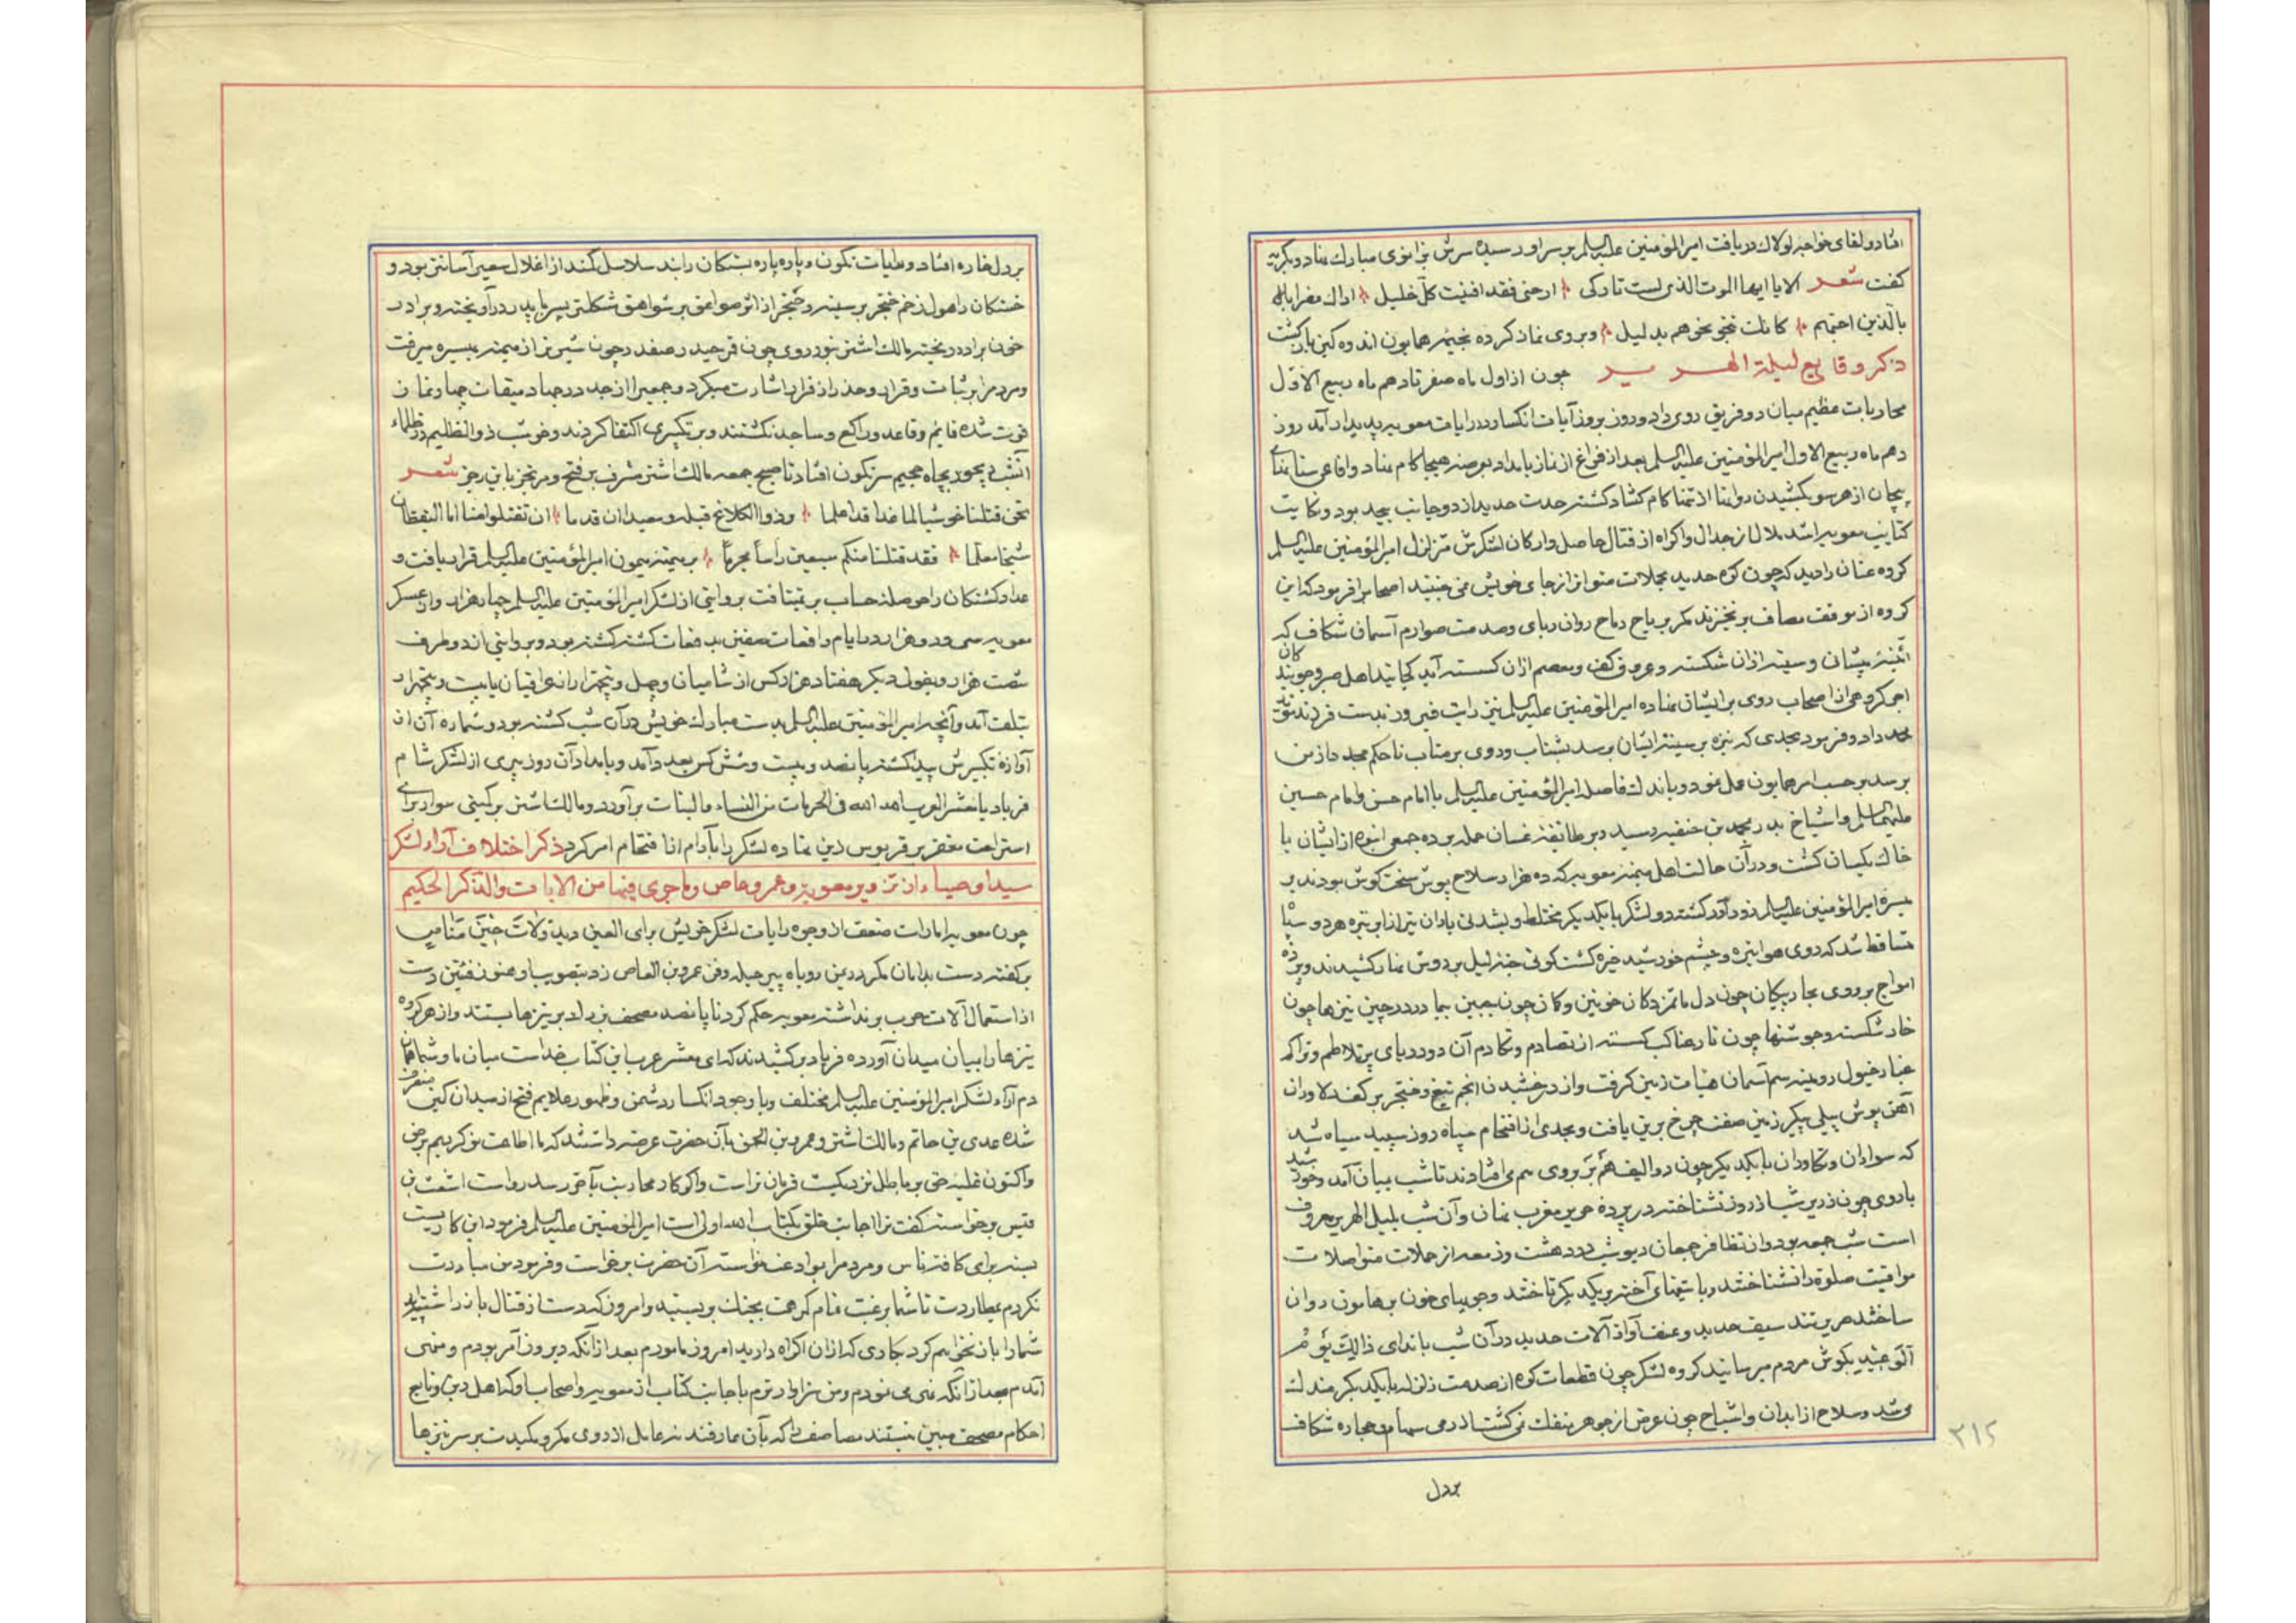 افتاد و لقای خواجه لولاك دریافت امیرالمؤمنین علیه السلم بر سر او رسیده سرش بزانوی مبارك نهاد و بگریه
گفت شعر الا یا ایها الموت الذی لست تارکی ارحنی فقد افنیت کل خلیل اراك مضرا
بالذین احبهم کانك تنحو نحوهم بدلیل و بروی نماز کرده بخیمه همایون اندوه کین بازگشت
ذکر وقایع لیلة الهریر چون از اول ماه صفر تا دهم ماه ربیع الاول
محاربات عظیم میان دو فریق روی داد و روز بروز آیات انکسار در رایات معویه پدیدار آمد روز
دهم ماه ربیع الاول امیرالمؤمنین علیه السلم بعد از فراغ از نماز بامداد بعرصه هیجا کام نهاد و افاعی سنانهای
پیچان از هر سو بکشیدن روانها از تمنا کام کشاد کشته حدت حدید از دو جانب بیجد بود و نکایت
کتایب معویه را شد ملال از جدال و اکراه از قتال حاصل و ارکان لشکرش متزلزل امیرالمؤمنین علیه السلم
کروه غسان را دید که چون کوه حدید بحملات متواتر از جای خویش نمی جنبند اصحاب را فرمود که این
کروه از موقف مصاف برنخیزند مکر بریاح رماح روان ربای و صدمت صوارم آسمان شکاف که
آئینه پیشانی و سینه ازان شکسته و عروق کف و معصم ازان کسسته آید کجایند اهل صبر و جویندکان
اجر کروهی از اصحاب روی بر ایشان نهاده امیرالمؤمنین علیه السلم نیز رایت فیروز بدست فرزند خود
محمد داد و فرمود بحدی که نیزه بر سینه ایشان برسد بشتاب و روی بر متاب تا حکم مجدد از من
برسد بر حسب امر همایون عمل نمود و باندك فاصله امیرالمؤمنین علیه السلم با امام حسن و امام حسین
علیهما السلم و اشیاخ بدر بمحمد بن حنفیه رسید و بر طائفه غسان حمله برده جمعی انبوه از ایشان با
خاك یکسان کشت و در آن حالت اهل میمنه معویه که ده هزار سلاح پوش سخت کوش بودند بر
میسره امیرالمؤمنین علیه السلم زورآور کشته دو لشکر با یکدیکر مختلط و بشدتی باران تیر از ابر تیره هر دو سپاه
متساقط شد که روی هوا تیره و چشم خورشید خیره کشت کوئی خنك لیل بر دوش نهار کشیدند و پرده
امواج بر روی بحار پیکان چون دل ماتم زدکان خونین و کمان چون جبین بیمار در چین نیزها چون
خار شکسته و جوشنها چون تار عناکب کسسته از تصادم و تحادم آن دو دریای پرتلاطم و تراکم
غبار خیول روئینه سم آسمان هیات زمین کرفت و از درخشیدن انجم تیغ و خنجر بر کف دلاوران
آهن پوش پیلی پیکر زمین صفت چرخ برین یافت و بحدی از اقتحام سپاه روز سپید سیاه شد
که سواران و تکاوران با یکدیکر چون دوالیف هم بر بروی هم می افتادند تا شب بمیان آمد و خورشید
با روی چون زریر شب از روز نشناخته در پرده حریر مغرب نهان و آن شب بلیلة الهریر معروف
است شب جمعه بود و از تظافر جمعان دیوشب در دهشت و زمعه از حملات متواصلات
مواقیت صلوة را نشناختند و با تیغهای آخته بر یکدیکر تاختند و جویهای خون بر هامون روان
ساختند هریر تند سیف حدید و عنف آواز آلات حدید در آن شب با ندای ذالك یوم
الوعید بکوش مردم میرسانید کروه لشکر چون قطعات کوه از صدمت زلزله با یکدیکر مندك
می شد و سلاح از ابدان و اشباح چون عرض از جوهر منفك نمی کشت از رمی سهام حجاره شکاف
بر دل
۲۱۵
بر دل خاره افتاد و رایات نکون و پاره پاره بستکان را بند سلاسل کمند از اغلال سعیر آسانتر بود و
خستکان را هول زخم خنجر بر سینه و حنجر از اثر صواعق بر شواهق شکلتر پسر با پدر درآویخته و برادر
خون برادر ریخته مالك اشتر بنور روی چون قمر حیدر صفدر چون شیر نر از میمنه بمیسره میرفت
و مردم را بر ثبات و قرار و حذر از فرار اشارت میکرد و جمعی را از جد در جهاد میقات چهار نماز
فوت شده قایم و قاعد و راکع و ساجد نکشتند و بر تکبیری اکتفا کردند و حوشب ذوالظلیم در ظلماء
آنشب دیجور بچاه جحیم سرنکون افتاد تا صبح جمعه مالك اشتر مشرف بر فتح و مرتجز باین رجز شعر
نحن قتلنا حوشبا لما غدا قد اعلما وذوا الکلاع قبله و معبدا ان قدما ان تقتلوا منا ابا الیقظان
شیخا معلما فقد قتلنا منکم سبعین راسا مجرما بر میمنه میمون امیرالمؤمنین علیه السلم قرار یافت و
عداد کشتکان را حوصله حساب بر نمیتافت بروایتی از لشکر امیرالمؤمنین علیه السلم چهار هزار و از عسکر
معویه سی و دو هزار در ایام واقعات صفین بدفعات کشته کشته بود و بروایتی از دو طرف
شصت هزار و بقول دیکر هفتاد هزار کس از شامیان و چهل و پنجهزار از عراقیان یا بیست و پنجهزار
بتلف آمد و آنچه امیرالمؤمنین علیه السلم بدست مبارك خویش در آن شب کشته بود و شماره آن از
آوازه تکبیرش پیدا کشته پانصد و بیست و شش کس بعد درآمد و بامداد آن روز پیری از لشکر شام
فریاد یا معشر العرب الله الله فی الحرمات من النساء و البنات برآورد و مالك اشتر بر کمیتی سوار برای
استراحت مغفر بر قربوس زین نهاده لشکر را بآرام انا فتحام امر کرد ذکر اختلاف آراء لشکر
سید اوصیاء از تزویر معویه و عمرو عاص و ما جری فیها من الایات والذکر الحکیم
چون معویه امارات ضعف از وجوه رایات لشکر خویش برای العین دید و لات حین مناص
بر کفته دست بدامان مکر در زمین روباه پیر حیله و فن عمرو بن العاص زد بتصویب او عنوز فئتین دست
از استعمال آلات حرب برنداشته معویه حکم کرد تا پانصد مصحف بزرك را بر نیزها بستند و از هر کروه
نیزها را بمیان میدان آورده فریاد برکشیدند که ای معشر عرب این کتاب خداست میان ما و شما همان
دم آراء لشکر امیرالمؤمنین علیه السلم مختلف و با وجود انکسار دشمن و ظهور علایم فتح از میدان کین منحرف
شده عدی بن حاتم و مالك اشتر و عمرو بن الحمق بآن حضرت عرضه داشتند که ما اطاعت تو کردیم بر حق
و اکنون غلبه حق بر باطل نزدیکست فرمان تراست و اکر کار محاربت بآخر رسد رواست اشعث بن
قیس برخواسته کفت ترا اجابت خلق بکتاب الله اولی است امیرالمؤمنین علیه السلم فرمود این کاریست
بسته برای کافه ناس و مردم را بوادعت خواسته آن حضرت برخواست و فرمود من مبادرت
نکردم بمطاردت تا شما برغبت تمام کمر همت بجنك بربستید و امروز که دست از قتال بازداشته اید
شما را باز نخواهم کرد بکاری که ازان اکراه دارید امروز مامورم بعد از آنکه دیروز آمر بودم و منهی
آمدم بعد از آنکه نهی می نمودم و من سزاوارترم باجابت کتاب از معویه و اصحاب او که اهل دین و تابع
احکام مصحف مبین نیستند مصاحف را که بآن عارفند نه عامل از روی مکر و مکیدت بر سر نیزها